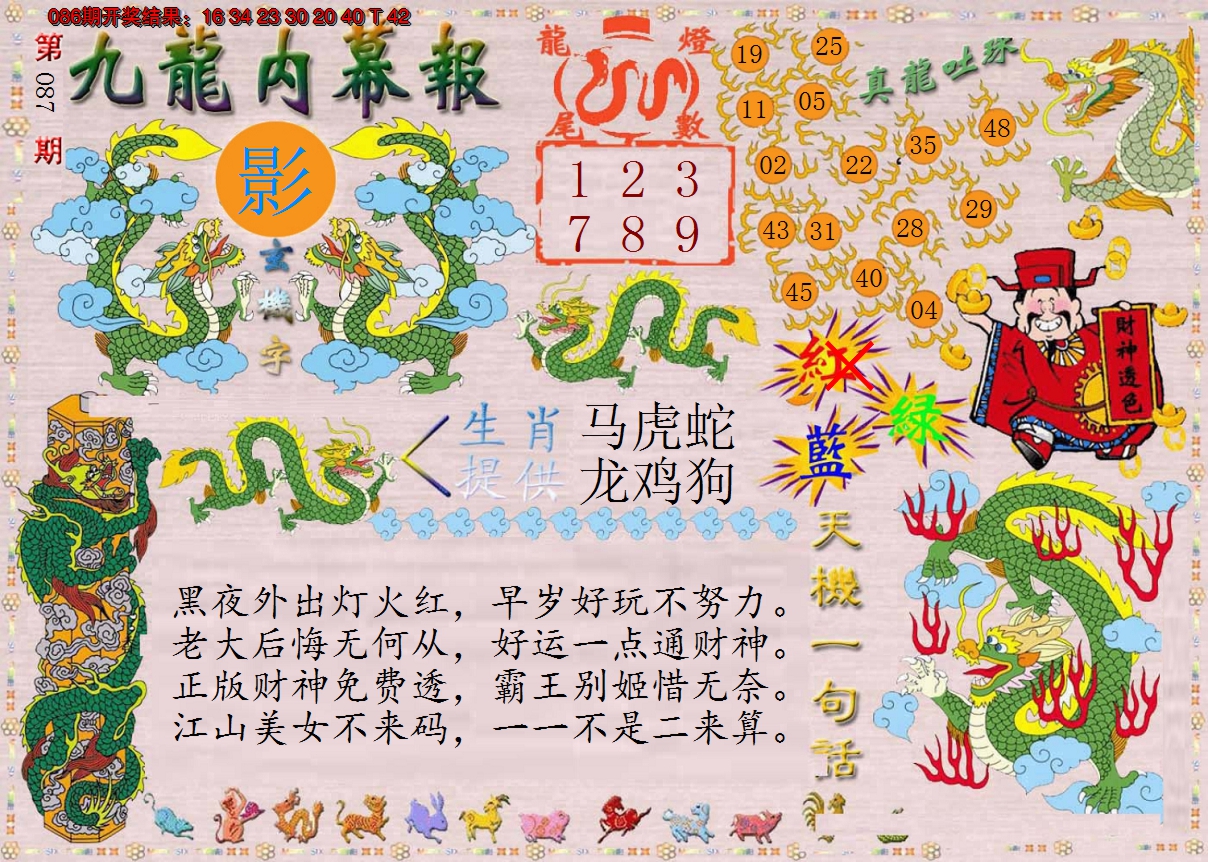 086期开奖结果：16 34 23 30 20 40 T 42
第087期
九龍内幕報
影
玄機字
龍燈
尾數
1 2 3
7 8 9
真龍吐珠
19 25
11 05
02 22 35 48
43 31 28 29
45 40 04
財神透色
紅
綠
藍
生肖 马虎蛇
提供 龙鸡狗
黑夜外出灯火红，早岁好玩不努力。
老大后悔无何从，好运一点通财神。
正版财神免费透，霸王别姬惜无奈。
江山美女不来码，一一不是二来算。
天機一句话